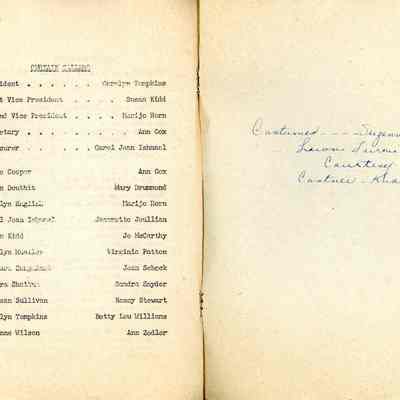 CURTAIN CALLERS
ident . . . . . . . Carolyn Tompkins
t Vice President . . . . Susan Kidd
nd Vice President . . . . Marijo Horn
etary . . . . . . . . . Ann Cox
surer . . . . . Carol Jean Ishmael
e Cooper Ann Cox
n Douthit Mary Drummond
lyn English Marijo Horn
l Jean Ishmael Jeannette Joullian
n Kidd Jo McCarthy
lyn Virginia Patton
Joan Scheck
ra Sandra Snyder
san Sullivan Nancy Stewart
lyn Tompkins Betty Lou Williams
nne Wilson Ann Zedler
Costumed - - - Suzann
Lawn
Courtesy